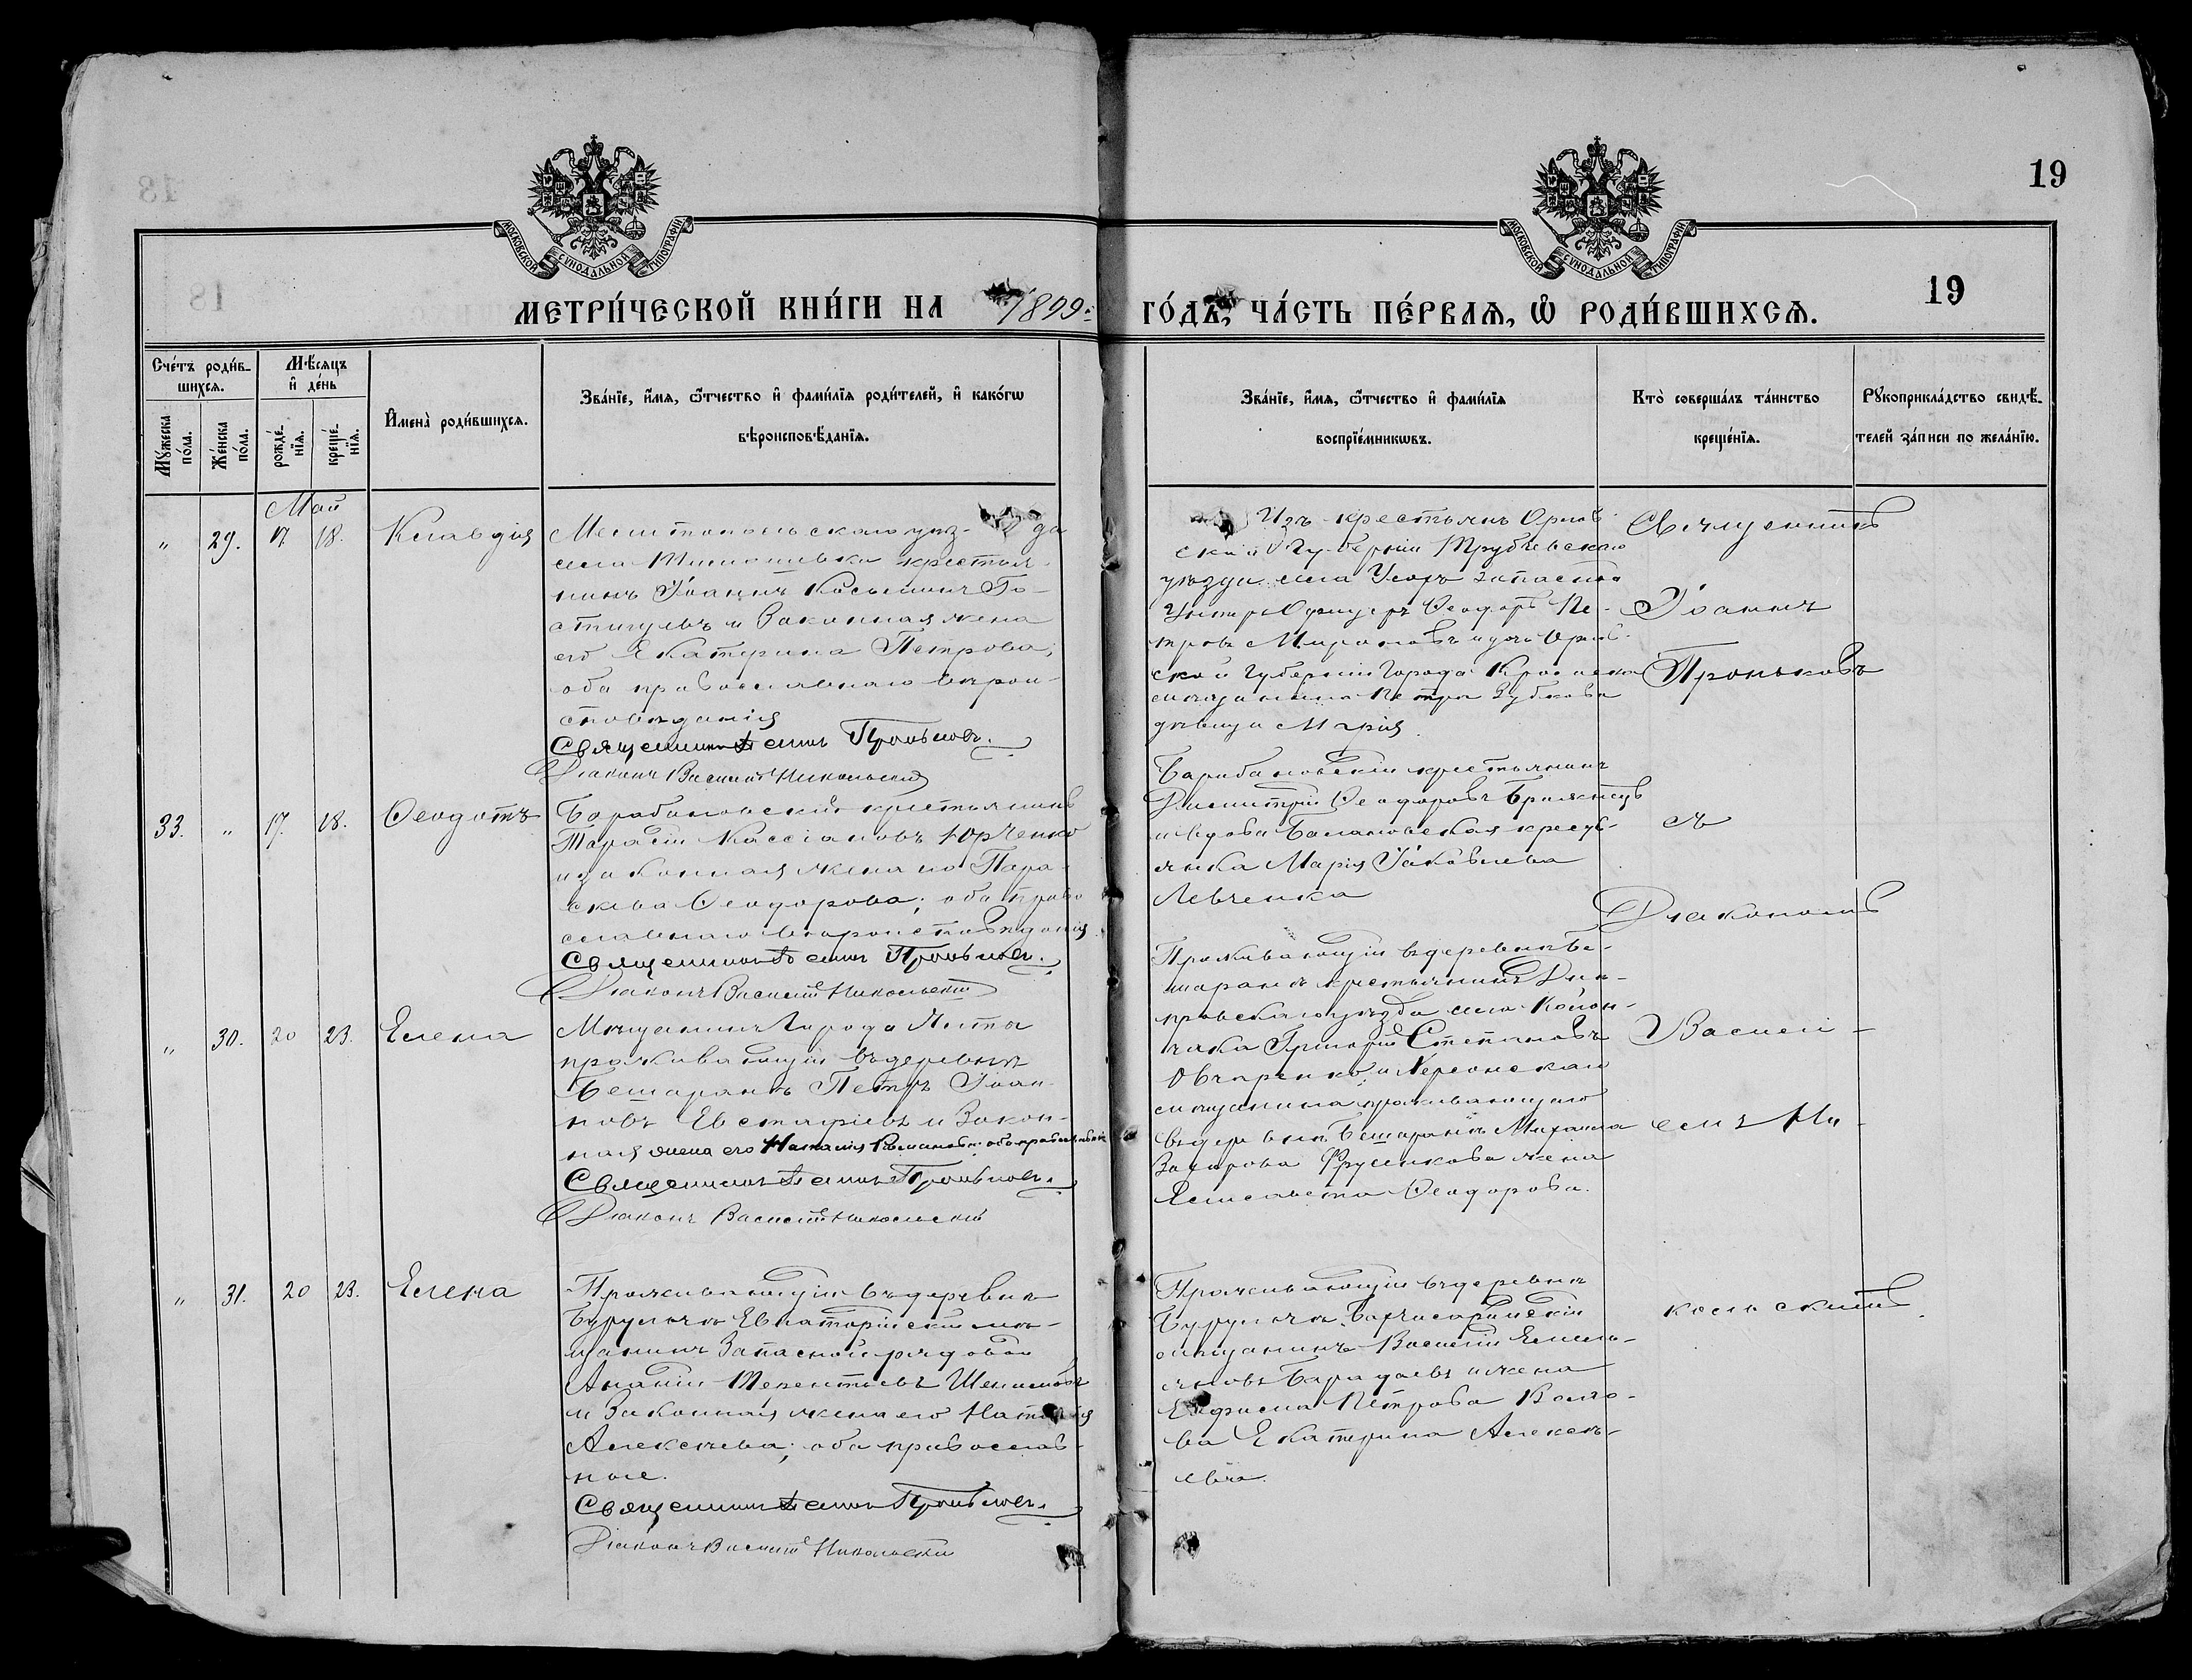 19
МОСКОВСКОЙ СУНОДАЛЬНОЙ ТИПОГРАФІИ
МОСКОВСКОЙ СУНОДАЛЬНОЙ ТИПОГРАФІИ
19
МЕТРИ́ЧЕСКОЙ КНИ́ГИ НА 1899:
ГО́ДЪ, ЧА́СТЬ ПЕ́РВАѦ, Ѡ҆ РОДИ́ВШИХСѦ.
Сче́тъ роди́в-
шихсѧ.
Мѣ́сѧцъ
и҆ де́нь
Мꙋ́жеска
по́ла.
Же́нска
по́ла.
рожде́-
нїѧ.
креще́-
нїѧ.
И҆мена̀ роди́вшихсѧ.
Зва́нїе, и҆́мѧ, ѻ҆́тчество и҆ фами́лїѧ роди́телей, и҆ како́гѡ
вѣроисповѣ́данїѧ.
Зва́нїе, и҆́мѧ, ѻ҆́тчество и҆ фами́лїѧ
воспрїе́мникѡвъ.
Кто̀ соверша́лъ та́инство
креще́нїѧ.
Рꙋкоприкла́дство свидѣ́-
телей за́писи по жела́нїю.
Май
" 29. 17. 18. Клавдія
Мелитопольскаго уѣз- да
села Тимошевки крестья-
нинъ Іоаннъ Косьминъ
и законная жена
его Екатерина Петрова;
оба православнаго вѣрои-
сповѣданія
Священникъ Іоаннъ Проньковъ.
Діаконъ Василій Никольскій
Изъ крестьянъ Орлов-
ской Губерніи Трубчевскаго
уѣзда села запасной
Унтеръ Офицеръ Ѳеодоръ Пе-
тровъ Мироновъ и дочь Орлов-
ской Губерніи Города
мѣщанина Петра Зубкова
дѣвица Марія.
Священникъ
Іоаннъ
Проньковъ
33. " 17. 18. Ѳеодотъ
Барабановскій крестьянинъ
Тарасій Кассіановъ Юрченко
и законная жена его Пара-
скева Ѳеодорова; оба право
славнаго вѣроисповѣданія.
Священникъ Іоаннъ Проньковъ.
Діаконъ Василій Никольскій
Барабановскій крестьянинъ
Димитрій Ѳеодоровъ
и вдова крестья-
янка Марія Іаковлева
Левченка
съ
Діакономъ
" 30. 20 23. Елена
Мѣщанинъ города Ялты
проживающій въ деревнѣ
Бешаранъ Петръ Іоан-
новъ Евстафіевъ и закон-
ная жена его Наталія оба православные
Священникъ Іоаннъ Проньковъ.
Діаконъ Василій Никольскій
Проживающій въ деревнѣ Бе-
шаранъ крестьянинъ Днѣ-
провскаго уѣзда села
Григорій Стефановъ
Овчаренко; и Херсонскаго
мѣщанина проживающаго
въ деревнѣ Бешаранъ Михаила
Захарова жена
Елисавета Ѳеодорова.
Василі-
емъ Ни-
" 31. 20 23. Елена
Проживающій въ деревнѣ
Бурульчѣ Евпаторійскій мѣ-
щанинъ запасной рядовой
Ананій Терентьевъ
и законная жена его Наталія
Алексѣева; оба православ-
ные.
Священникъ Іоаннъ Проньковъ.
Діаконъ Василій Никольскій
Проживающій въ деревнѣ
Бурульчѣ Бахчисарайскій
мѣщанинъ Василій Емель-
яновъ и жена
Петрова
Екатерина Алексѣ-
евна.
кольскимъ.